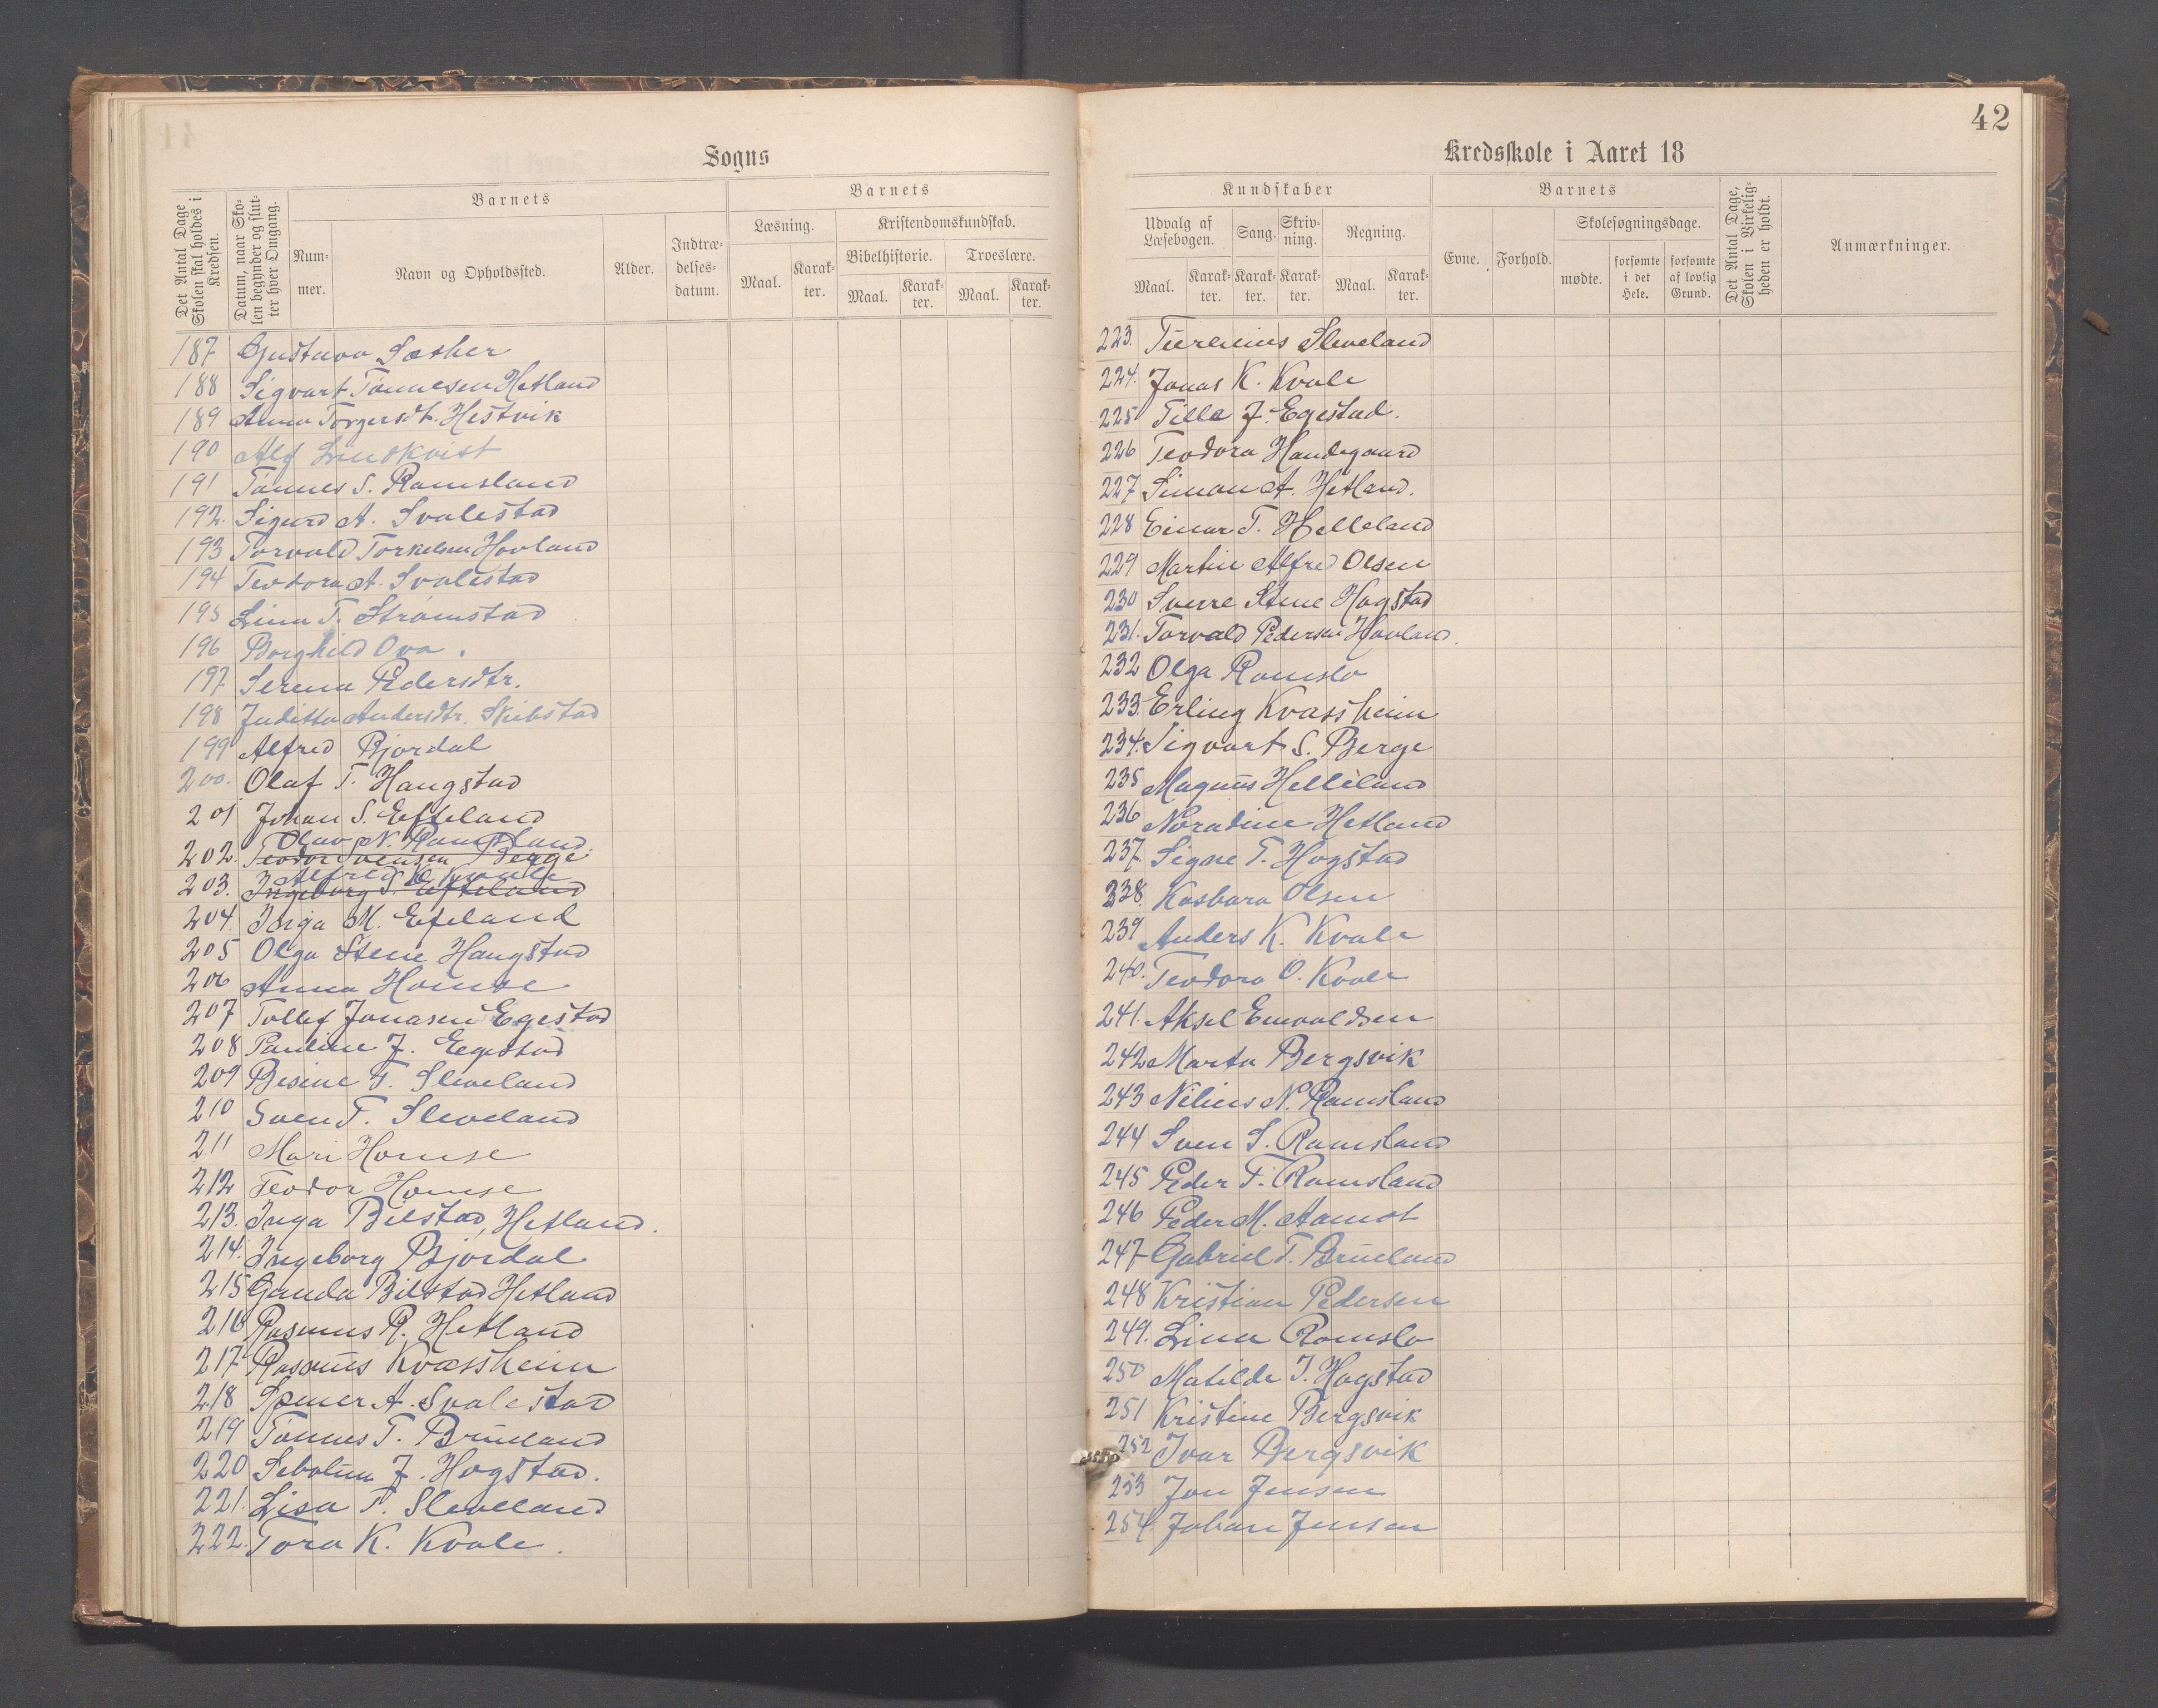 42
Sogns
Kredsskole i Aaret 18
Det Antal Dage Skolen skal holdes i Kredsen.
Datum, naar Skolen begynder og slutter hver Omgang.
Barnets
Nummer.
Navn og Opholdssted.
Alder.
Indtrædelsesdatum.
Barnets
Læsning.
Kristendomskundskab.
Bibelhistorie.
Troeslære.
Maal.
Karakter.
Maal.
Karakter.
Maal.
Karakter.
Kundskaber
Udvalg af Læsebogen.
Sang.
Skrivning.
Regning.
Maal.
Karakter.
Karakter.
Karakter.
Maal.
Karakter.
Barnets
Evne.
Forhold.
Skolesøgningsdage.
mødte.
forsømte i det Hele.
forsømte af lovlig Grund.
Det Antal Dage, Skolen i Virkeligheden er holdt.
Anmærkninger.
187 Gustava Sæther
188 Sigvart Tönnesen Hetland
189 Anna Torgersdt. Hestvik
190 Alf Lindkvist
191 Tönnes S. Ramsland
192. Sigurd A. Svalestad
193 Torvald Torkelsen Hovland
194 Teodora A. Svalestad
195 Lina T. Strømstad
196 Borghild Ova.
197 Serena Pedersdtr.
198 Juditta Andersdtr. Skibstad
199 Alfred Bjordal
200. Olaf T. Haugstad
201 Johan S. Efteland
Olav N. Ramsland
202. Teodor Svensen Berge
Alfred K. Kvale
203. Ingeborg S. Efteland
204. Inga M. Efteland
205 Olga Stene Haugstad
206 Anna Homse
207 Tollef Jonasen Egestad
208 Pauline J. Egestad
209 Besine T. Sleveland
210 Sven T. Sleveland
211 Mari Homse
212 Teodor Homse
213. Inga Bilstad, Hetland.
214. Ingeborg Bjordal
215 Ganda Bilstad Hetland
216 Rasmus R. Hetland
217 Rasmus Kvassheim
218 A. Svalestad
219 Tönnes T. Brüeland
220 J. Hogstad.
221. Lisa T. Sleveland
222. Tora K. Kvale.
223. Sleveland
224. Jonas K. Kvale
225 Tilla J. Egestad.
226 Teodora Haudegaard
227 Simon A. Hetland.
228 Einar T. Helleland
229 Martin Alfred Olsen
230 Sverre Stene Hogstad
231. Torvald Pedersen Hovland.
232 Olga Romslo
233. Erling Kvassheim
234. Sigvart S. Berge
235 Magnus Helleland
236 Noradine Hetland
237. Signe T. Hogstad
238. Kasbara Olsen
239 Anders K. Kvale
240. Teodora O. Kvale
241. Aksel Envaldsen
242 Marta Bergsvik
243 Nilius N. Ramsland
244 Sven S. Ramsland
245 Peder T. Ramsland
246 Peder M. Aamot
247 Gabriel T. Brüeland
248 Kristian Pedersen
249. Lina Romslo
250 Matilde T. Hogstad
251 Kristine Bergsvik
252 Ivar Bergsvik
253 Jon Jensen
254. Johan Jensen